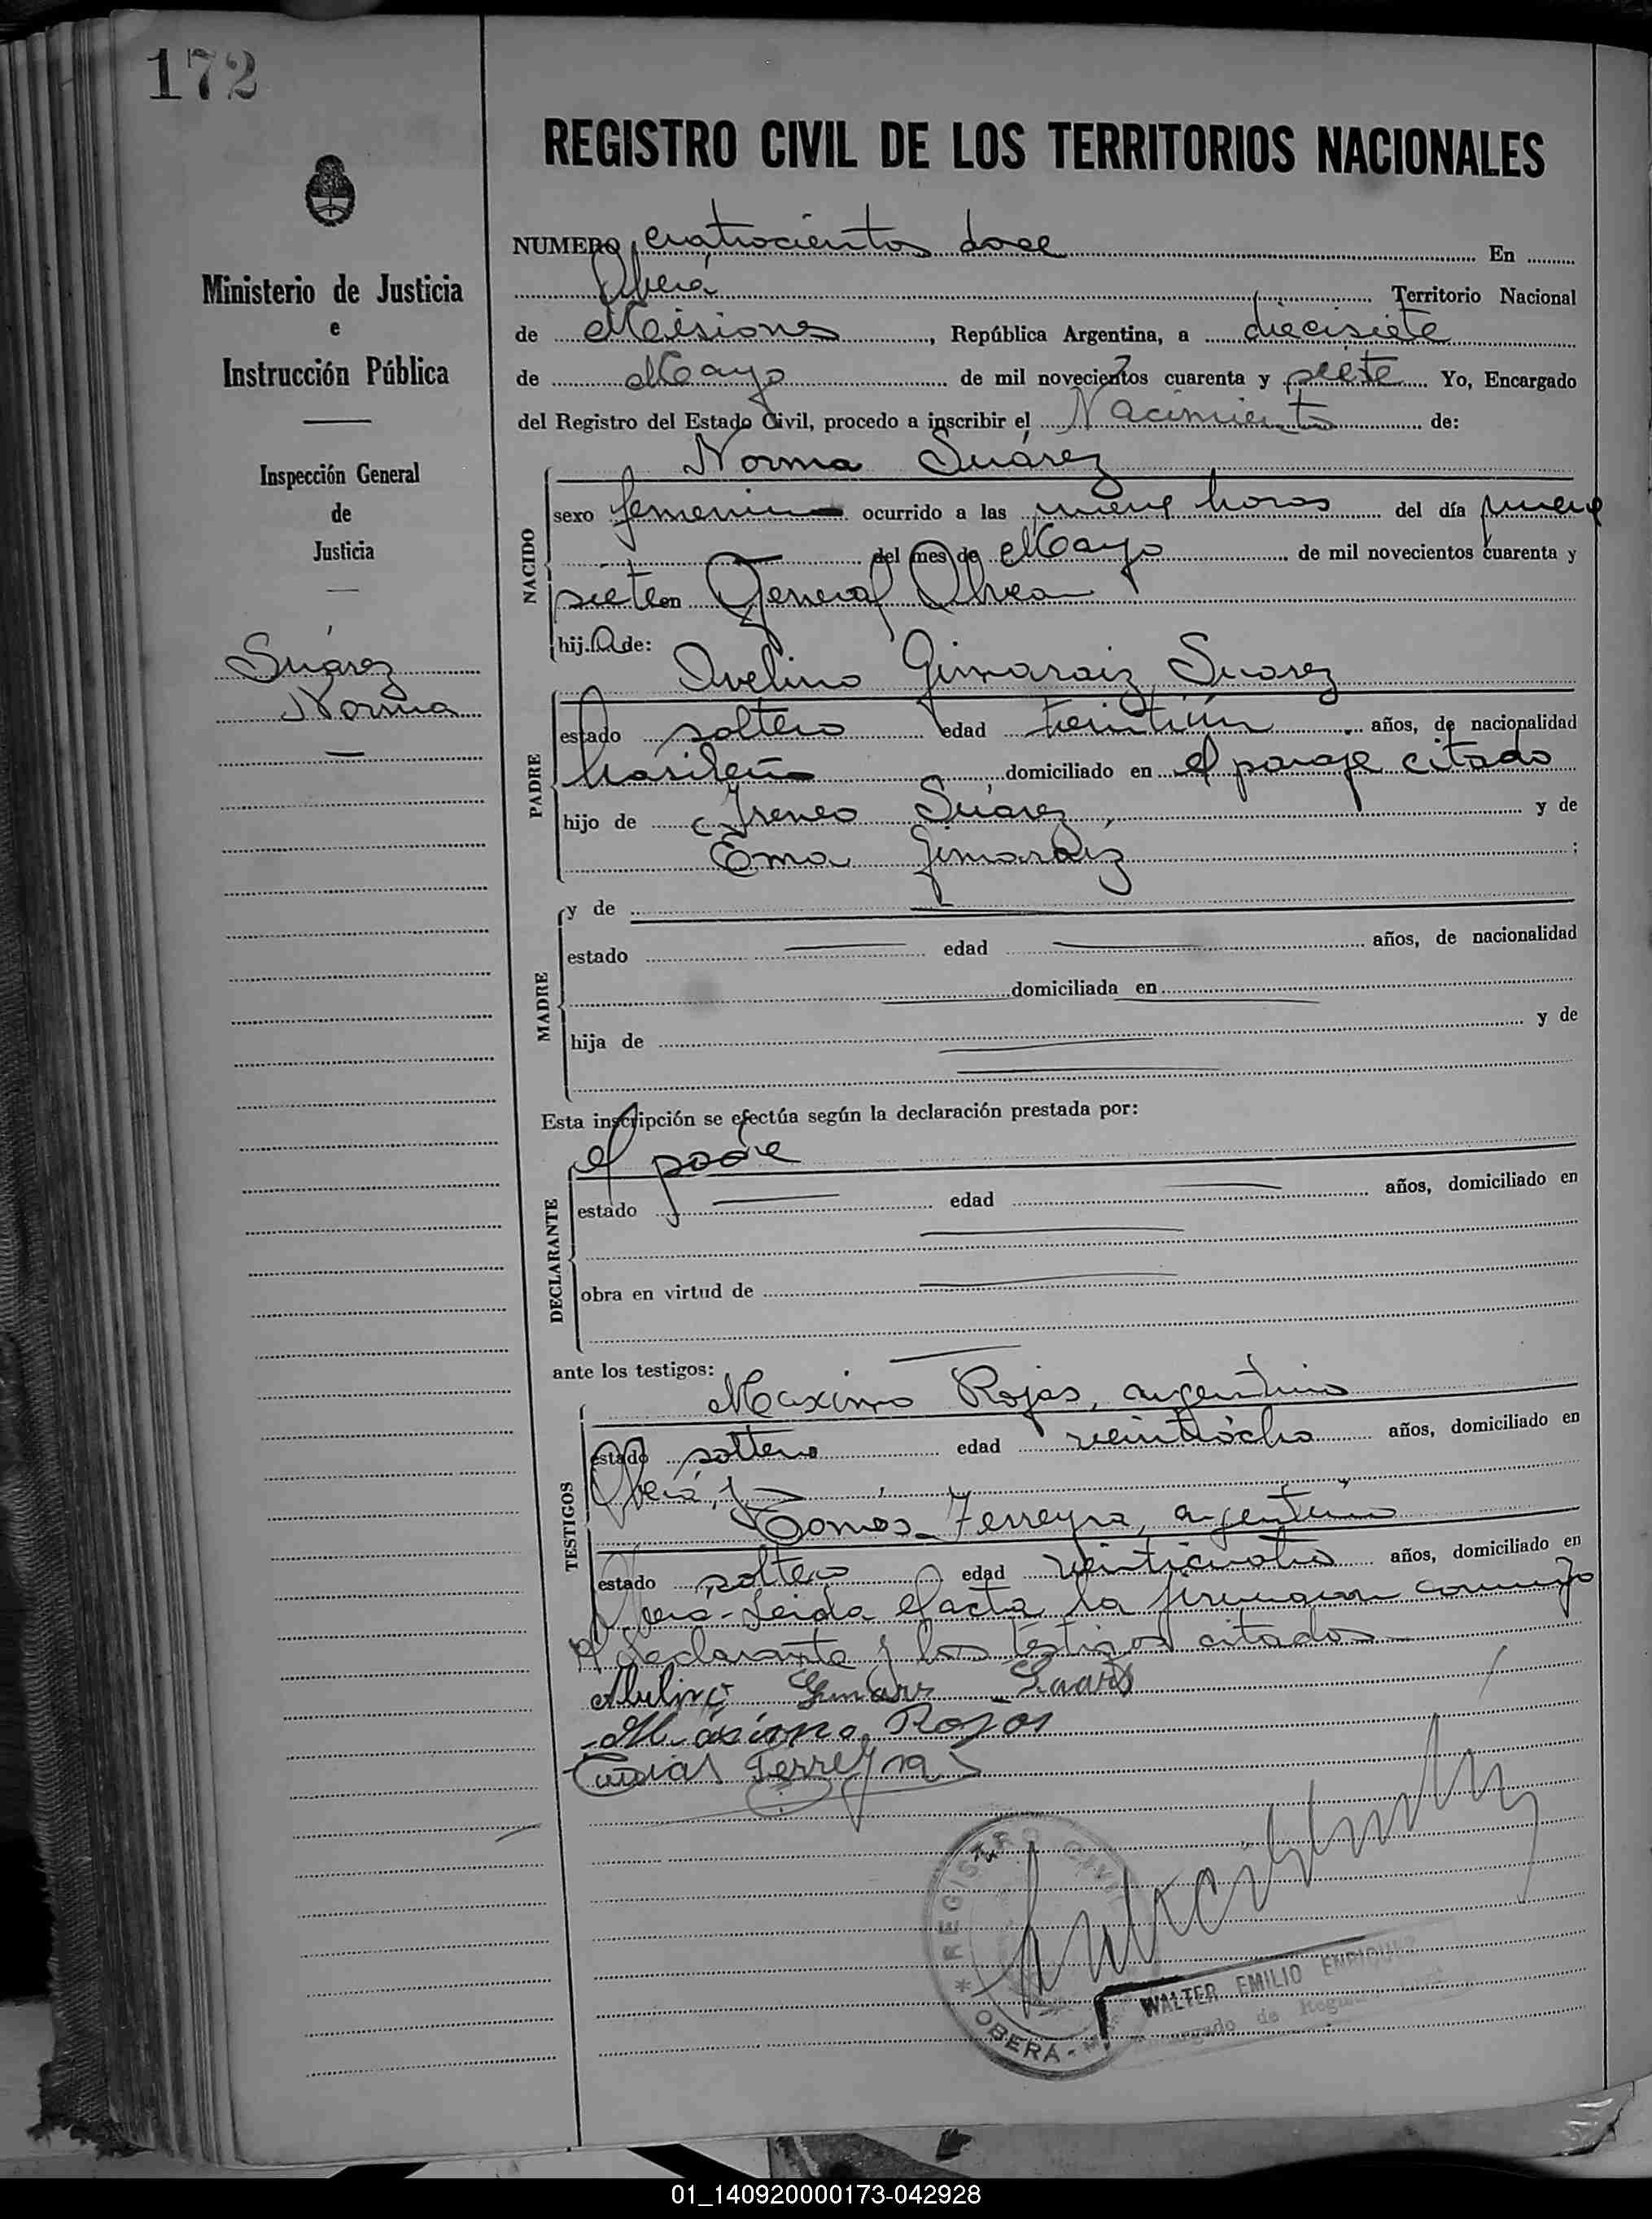 172
REGISTRO CIVIL DE LOS TERRITORIOS NACIONALES
Ministerio de Justicia
e
Instrucción Pública
Inspección General
de
Justicia
Suárez
Norma
NUMERO cuatrocientos doce En
Oberá Territorio Nacional
de Misiones, República Argentina, a diecisiete
de Mayo de mil novecientos cuarenta y siete Yo, Encargado
del Registro del Estado Civil, procedo a inscribir el Nacimiento de:
Norma Suárez
NACIDO
sexo femenino ocurrido a las nueve horas del día nueve
del mes de Mayo de mil novecientos cuarenta y
siete en General Alvear
hija de:
Avelino Gimaraiz Suarez
PADRE
estado soltero edad treintiún años, de nacionalidad
brasileña domiciliado en el paraje citado
hijo de Ireneo Suárez, y de
Ema Gimaraiz ;
MADRE
y de
estado edad años, de nacionalidad
domiciliada en
hija de y de
Esta inscripción se efectúa según la declaración prestada por:
el padre
DECLARANTE
estado edad años, domiciliado en
obra en virtud de
ante los testigos:
Maximo Rojas, argentino
TESTIGOS
estado soltero edad veintiocho años, domiciliado en
Oberá, y
Tomás Ferreyra, argentino
estado soltero edad veinticuatro años, domiciliado en
Oberá- Leída el acta la firmaron conmigo
el declarante y los testigos citados
Suars
Máximo Rojas
Ferreyra
REGISTRO CIVIL
* OBERÁ - M
WALTER EMILIO ENRIQUEZ
Encargado de
01_140920000173-042928